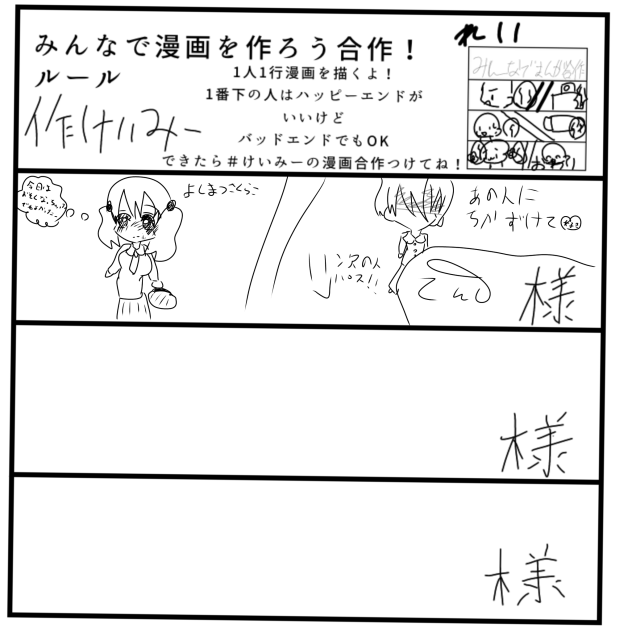 みんなで漫画を作ろう合作！
ルール
1人1行漫画を描くよ！
1番下の人はハッピーエンドが
いいけど
バッドエンドでもOK
できたら＃けいみーの漫画合作つけてね！
作けいみー
れい
みんなでまんが合作
おわり
今日は
よしまつさくらこ
あの人に
ちかずけて
次の人
パス!!
てんし
様
様
様